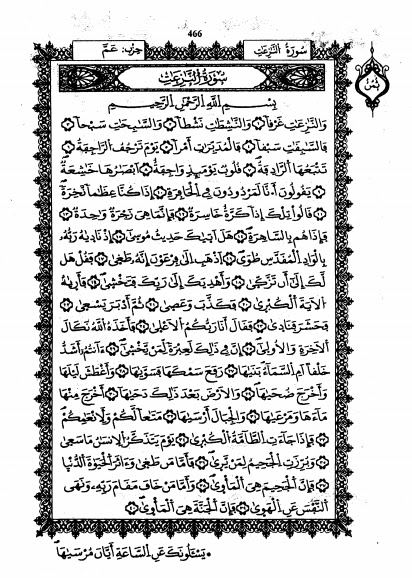 466
سورة النَّـٰزِعَـٰتِ حزب: عَمَّ
ثمن
سُورَةُ النَّـٰزِعَـٰتِ
بِسْمِ اللَّهِ الرَّحْمَـٰنِ الرَّحِيمِ
وَالنَّـٰزِعَـٰتِ غَرْقاً ۝ وَالنَّـٰشِطَـٰتِ نَشْطاً ۝ وَالسَّـٰبِحَـٰتِ سَبْحاً ۝
فَالسَّـٰبِقَـٰتِ سَبْقاً ۝ فَالْمُدَبِّرَٰتِ أَمْراً ۝ يَوْمَ تَرْجُفُ الرَّاجِفَةُ ۝
تَتْبَعُهَا الرَّادِفَةُ ۝ قُلُوبٌ يَوْمَئِذٍ وَاجِفَةٌ ۝ أَبْصَـٰرُهَا خَـٰشِعَةٌ ۝
يَقُولُونَ أَنَّا لَمَرْدُودُونَ فِي الْحَافِرَةِ ۝ إِذَا كُنَّا عِظَـٰماً نَّخِرَةً ۝
قَالُواْ تِلْكَ إِذاً كَرَّةٌ خَاسِرَةٌ ۝ فَإِنَّمَا هِيَ زَجْرَةٌ وَٰحِدَةٌ ۝
فَإِذَا هُم بِالسَّاهِرَةِ ۝ هَلْ أَتَيٰكَ حَدِيثُ مُوسَىٰ ۝ إِذْ نَادَيٰهُ رَبُّهُ
بِالْوَادِ الْمُقَدَّسِ طُوَى ۝ اَذْهَبِ اِلَىٰ فِرْعَوْنَ إِنَّهُ طَغَىٰ ۝ فَقُلْ هَل
لَّكَ إِلَىٰ أَن تَزَّكَّىٰ ۝ وَأَهْدِيَكَ إِلَىٰ رَبِّكَ فَتَخْشَىٰ ۝ فَأَرَيٰهُ
الْآيَةَ الْكُبْرَىٰ ۝ فَكَذَّبَ وَعَصَىٰ ۝ ثُمَّ أَدْبَرَ يَسْعَىٰ ۝
فَحَشَرَ فَنَادَىٰ ۝ فَقَالَ أَنَا رَبُّكُمُ الْأَعْلَىٰ ۝ فَأَخَذَهُ اللَّهُ نَكَالَ
الْآخِرَةِ وَالْأُولَىٰ ۝ إِنَّ فِي ذَٰلِكَ لَعِبْرَةً لِّمَنْ يَّخْشَىٰ ۝ ءَآنتُمْ أَشَدُّ
خَلْقاً أَمِ السَّمَآءُ بَنَيٰهَا ۝ رَفَعَ سَمْكَهَا فَسَوَّيٰهَا ۝ وَأَغْطَشَ لَيْلَهَا
وَأَخْرَجَ ضُحَيٰهَا ۝ وَالْأَرْضَ بَعْدَ ذَٰلِكَ دَحَيٰهَا ۝ أَخْرَجَ مِنْهَا
مَآءَهَا وَمَرْعَيٰهَا ۝ وَالْجِبَالَ أَرْسَيٰهَا ۝ مَتَـٰعاً لَّكُمْ وَلِأَنْعَـٰمِكُمْ ۝
فَإِذَا جَآءَتِ الطَّآمَّةُ الْكُبْرَىٰ ۝ يَوْمَ يَتَذَكَّرُ الْإِنسَـٰنُ مَا سَعَىٰ ۝
وَبُرِّزَتِ الْجَحِيمُ لِمَنْ يَّرَىٰ ۝ فَأَمَّا مَن طَغَىٰ ۝ وَءَاثَرَ الْحَيَوٰةَ الدُّنْيَا ۝
فَإِنَّ الْجَحِيمَ هِيَ الْمَأْوَىٰ ۝ وَأَمَّا مَنْ خَافَ مَقَامَ رَبِّهِ وَنَهَى
النَّفْسَ عَنِ الْهَوَىٰ ۝ فَإِنَّ الْجَنَّةَ هِيَ الْمَأْوَىٰ ۝
• يَسْـَٔلُونَكَ عَنِ السَّاعَةِ أَيَّانَ مُرْسَيٰهَا